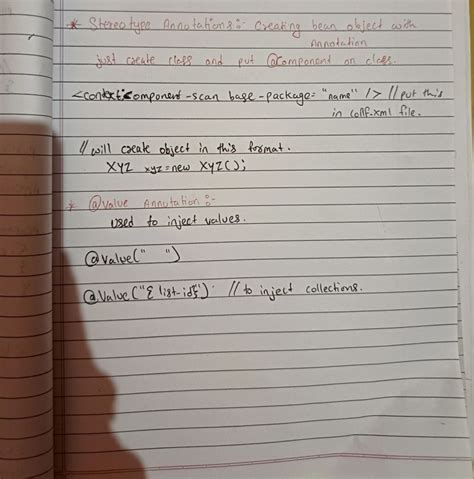 * Stereotype Annotations:- Creating bean object with
Annotation
just create class and put @Component on class.
<context:component-scan base-package="name" /> // put this
in conf.xml file.
// will create object in this format.
XYZ xyz = new XYZ();
* @Value Annotation :-
used to inject values.
@Value(" ")
@Value("{ list-id}") // to inject collections.